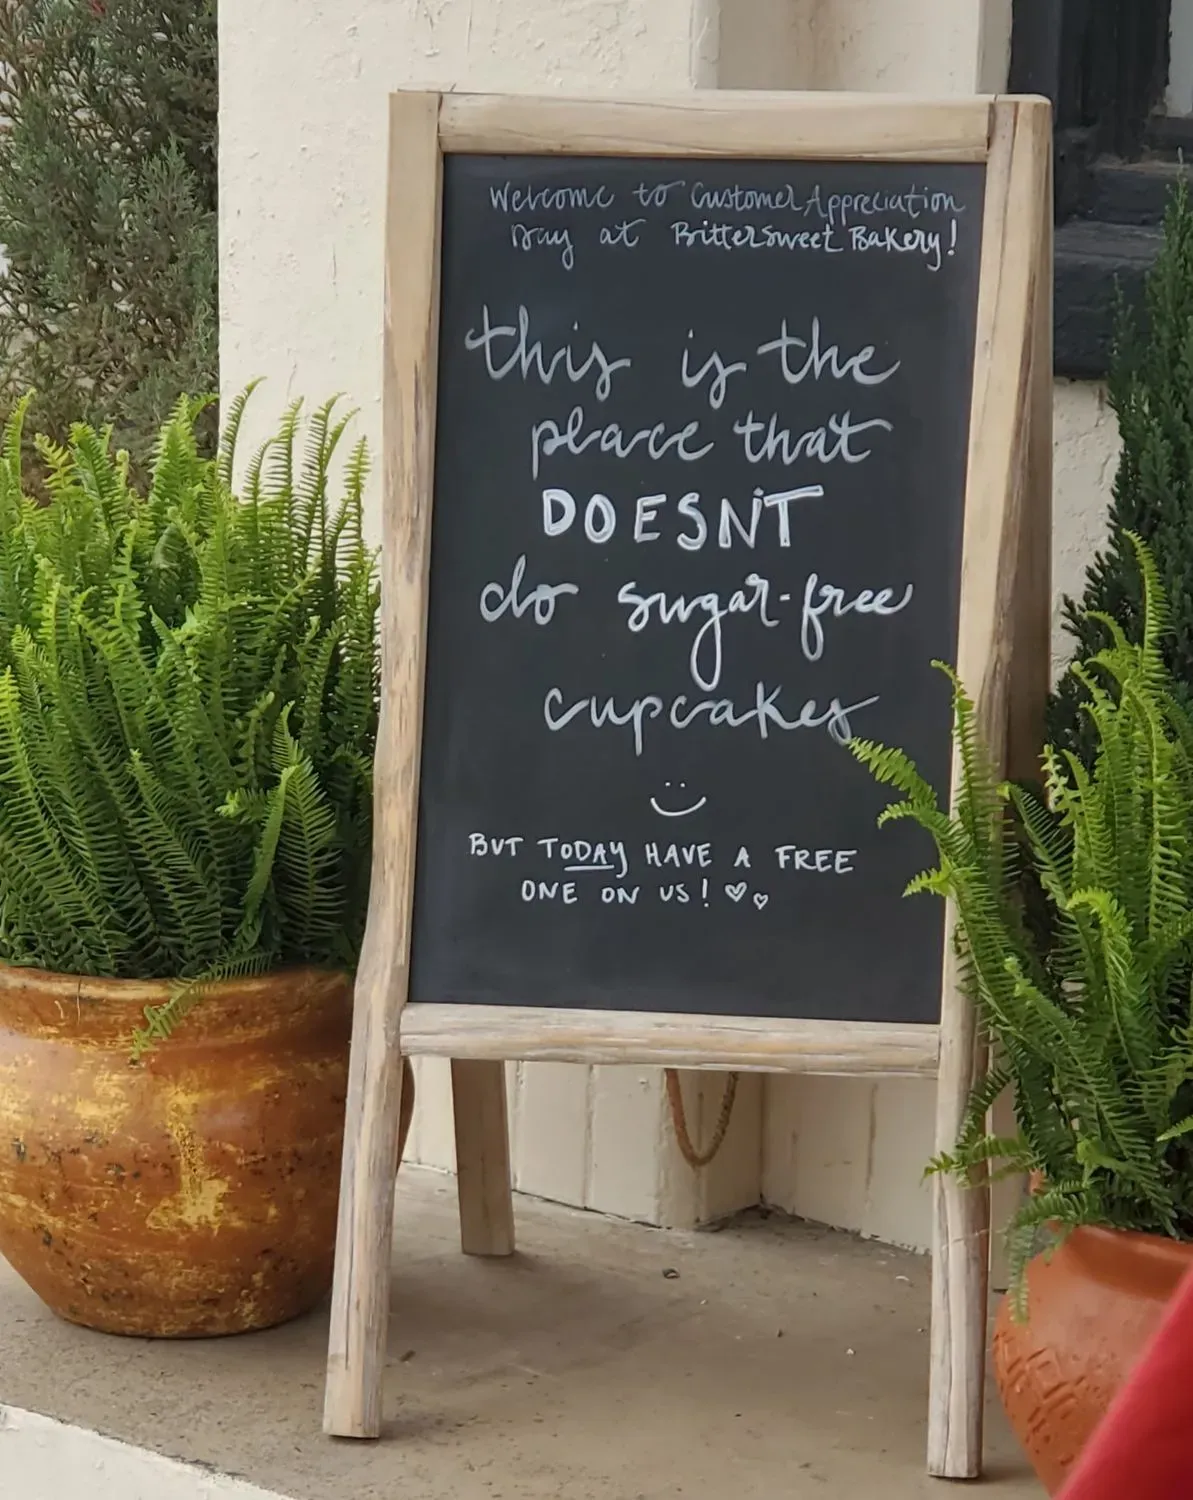 Welcome to Customer Appreciation
Day at Bittersweet Bakery!
this is the
place that
DOESN'T
do sugar-free
cupcakes
BUT TODAY HAVE A FREE
ONE ON US! ♡♡